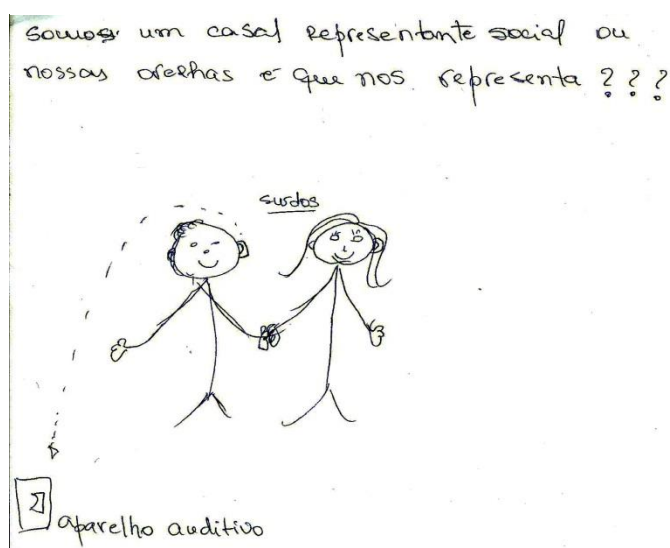 somos um casal representante social ou
nossas orelhas é que nos representa ???
surdos
aparelho auditivo